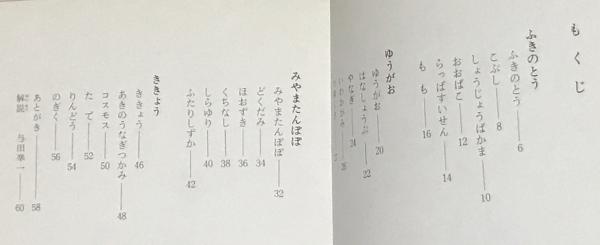 もくじ
ふきのとう
ふきのとう——6
こぶし——8
しょうじょうばかま——10
おおばこ——12
らっぱすいせん——14
もも——16
ゆうがお
ゆうがお——20
はなしょうぶ——22
やなぎ——24
みやまたんぽぽ
みやまたんぽぽ——32
どくだみ——34
ほおずき——36
くちなし——38
しらゆり——40
ふたりしずか——42
ききょう
ききょう——46
あきのうなぎつかみ——48
コスモス——50
たで——52
りんどう——54
のぎく——56
あとがき——58
解説 与田凖一——60